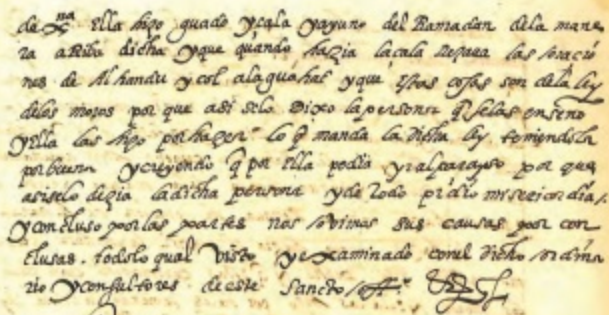 de xpna ella hizo guado y cala y ayuno del Ramadan de la mane
ra arriba dicha y que quando hazia la cala Rezava las oracio
nes de Alhandu y col alaguhat y que estas cosas son de la ley
de los moros por que asi se lo Dixo la persona q se las enseño
y ella las hizo por hazer lo q manda la dicha ley teniendola
por buena y creyendo q por ella podia yr al parayso por que
asi se lo dezia la dicha persona y de todo pidio misericordia,
y concluso por las partes nos ovimos sus causas por con
clusas. todo lo qual Visto y examinado con el dicho ordina
rio y consultores de este Sancto offo